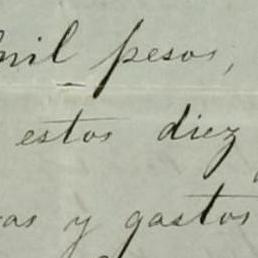 mil pesos,
estos diez
as y gastos